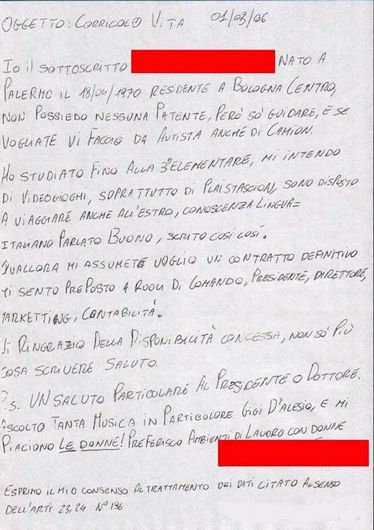 OGGETTO: CORRICOLO VITA 01/03/06
IO IL SOTTOSCRITTO NATO A
PALERMO IL 18/04/1970 RESIDENTE A BOLOGNA CENTRO,
NON POSSIEDO NESSUNA PATENTE, PERÒ SÒ GUIDARE, E SE
VOGLIATE VI FACCIO DA AUTISTA ANCHE DI CAMION.
HO STUDIATO FINO ALLA 3ª ELEMENTARE, MI INTENDO
DI VIDEOGIOGHI, SOPRATTUTTO DI PLAISTASCION, SONO DISPOSTO
A VIAGGIARE ANCHE ALL'ESTRO, CONOSCENZA LINGUA=
ITALIANO PARLATO BUONO, SCRITO COSÌ COSÌ.
QUALLORA MI ASSUMETE VOGLIO UN CONTRATTO DEFINITIVO
MI SENTO PREPOSTO A ROOLI DI COMANDO, PRESIDENTE, DIRETTORE,
MARKETTING, CONTABILITÀ.
VI RINGRAZIO DELLA DISPONIBILITÀ CONCESSA, NON SÒ PIÙ
COSA SCRIVERE SALUTO.
P.S. UN SALUTO PARTICOLARE AL PRESIDENTE O DOTTORE.
ASCOLTO TANTA MUSICA IN PARTICOLORE GIGI D'ALESIO, E MI
PIACIONO LE DONNE! PREFERISCO AMBIENTI DI LAVORO CON DONNE
ESPRIMO IL MIO CONSENSO AL TRATTAMENTO DEI DATI CITATO AL SENSO
DELL'ARTI 23,24 N° 196